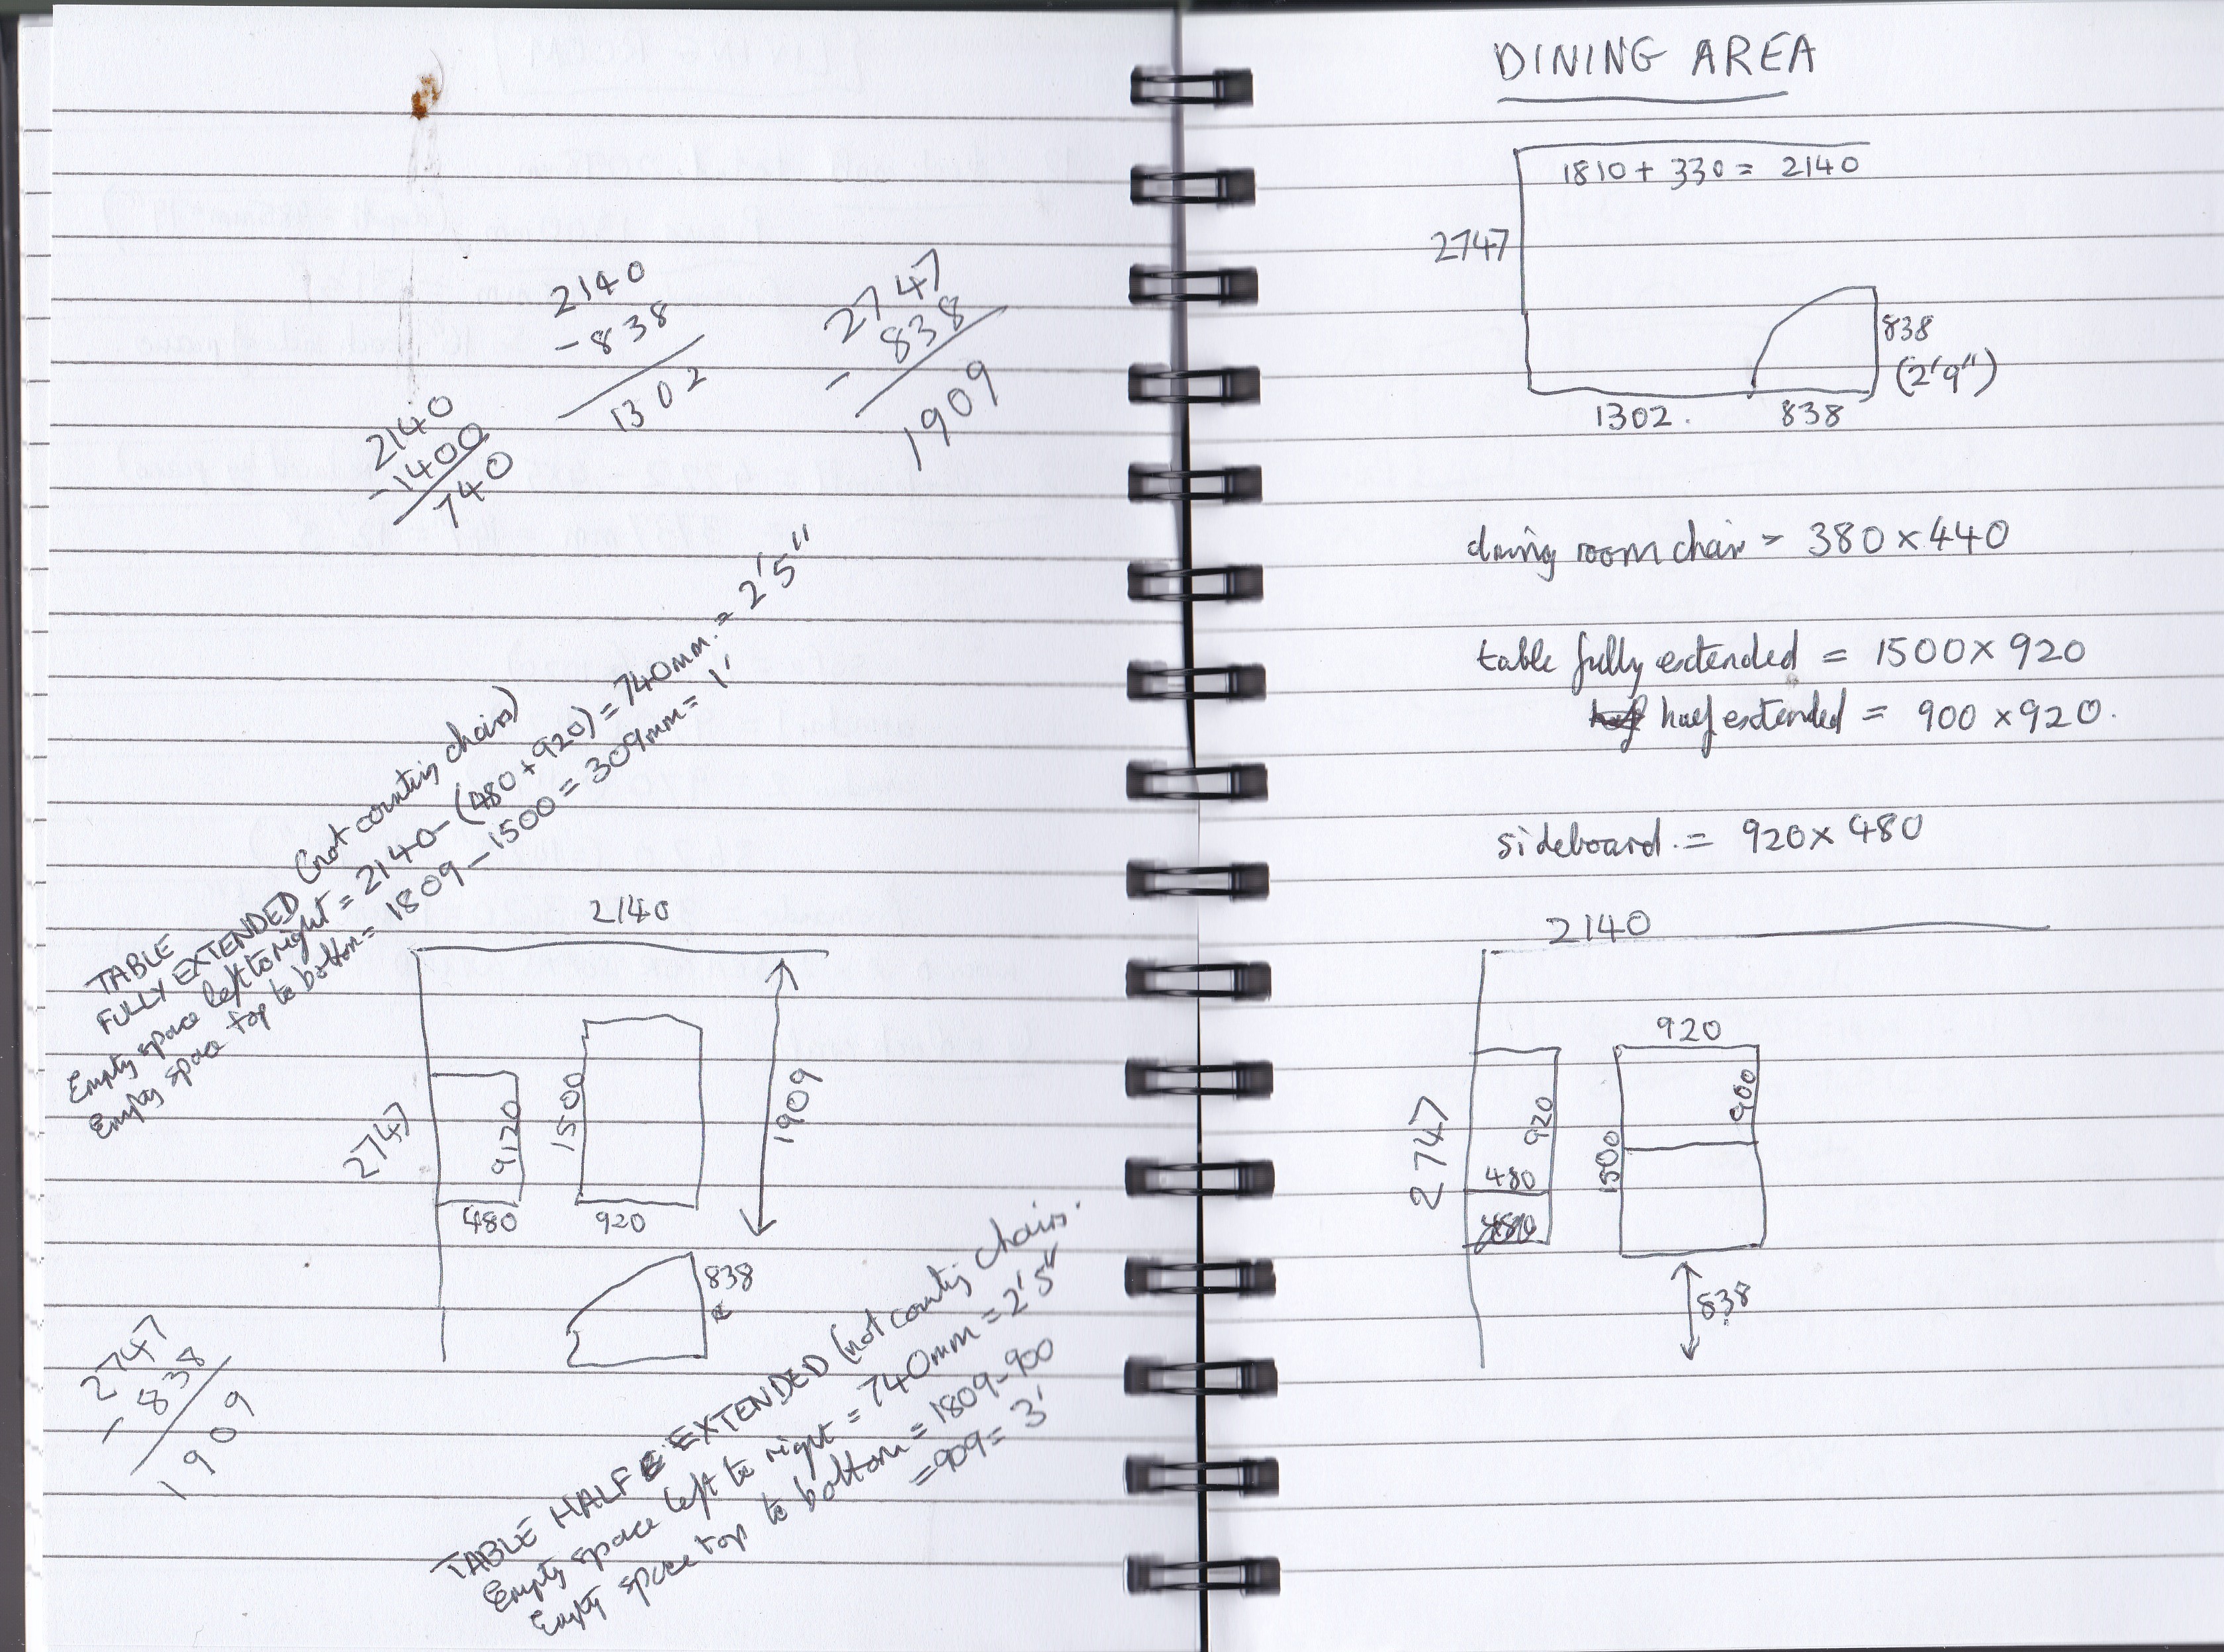 2140
-838
1302
2747
- 838
1909
2140
-1400
740
TABLE
FULLY EXTENDED (not counting chairs)
Empty space left to right = 2140-(480+920) = 740mm. = 2'5"
Empty space top to bottom = 1809-1500 = 309mm = 1'
2140
2747
9120
480
1500
920
1909
838
2747
- 838
1909
TABLE HALF EXTENDED (not counting chairs.
Empty space left to right = 740mm = 2'5"
Empty space top to bottom = 1809-900
=909= 3'
DINING AREA
1810 + 330 = 2140
2747
838
(2'9")
1302.
838
dining room chair = 380 x 440
table fully extended = 1500 x 920
half half extended = 900 x 920.
sideboard. = 920 x 480
2140
2747
920
480
920
900
1500
838